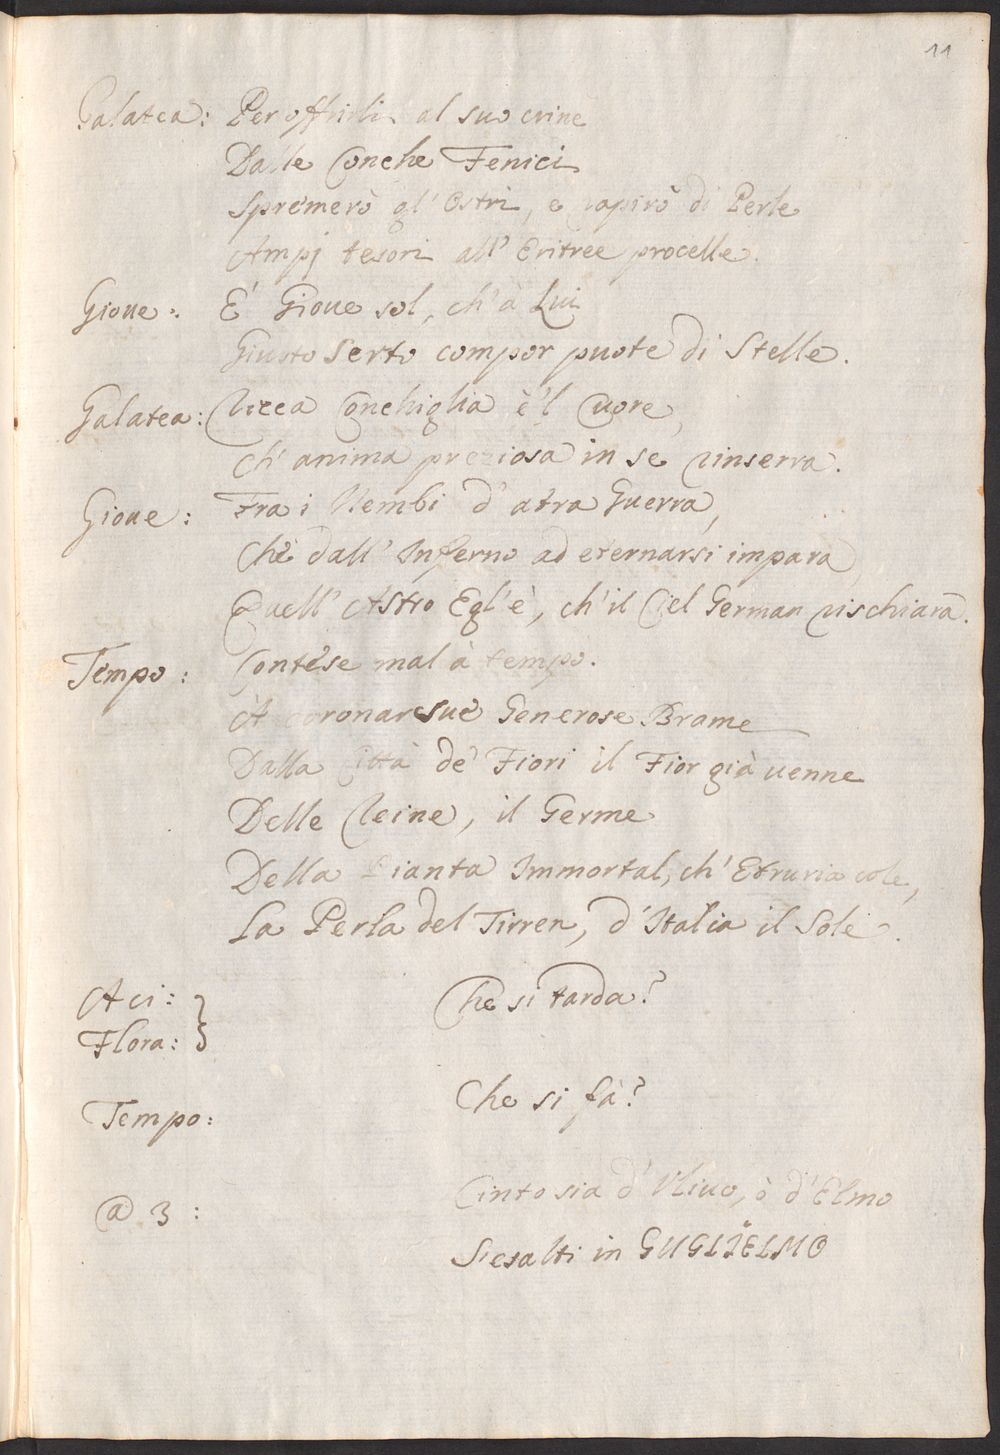 11
Galatea: Per offrirli al suo crine
Dalle Conche Fenici
Spremerò gl' Ostri, e rapirò di Perle
Ampj tesori all' Eritree procelle.
Gioue: E' Gioue sol, ch' à Lui
Giusto Serto compor puote di Stelle.
Galatea: Ricca Conchiglia è 'l Cuore,
Ch' anima preziosa in se rinserra.
Gioue: Fra i Nembi d' atra Guerra,
Che dall' Inferno ad eternarsi impara
Quell' Astro Egl' è, ch' il Ciel German rischiara.
Tempo: Contese mal à tempo.
A coronar sue Generose Brame
Dalla Città de' Fiori il Fior già uenne
Delle Reine, il Germe
Della Pianta Immortal, ch' Etruria cole,
La Perla del Tirren, d' Italia il Sole.
Aci: }
Flora: } Che si tarda?
Tempo: Che si fà?
@ 3: Cinto sia d' Vliuo, ò d' Elmo
S' esalti in GUGLIELMO